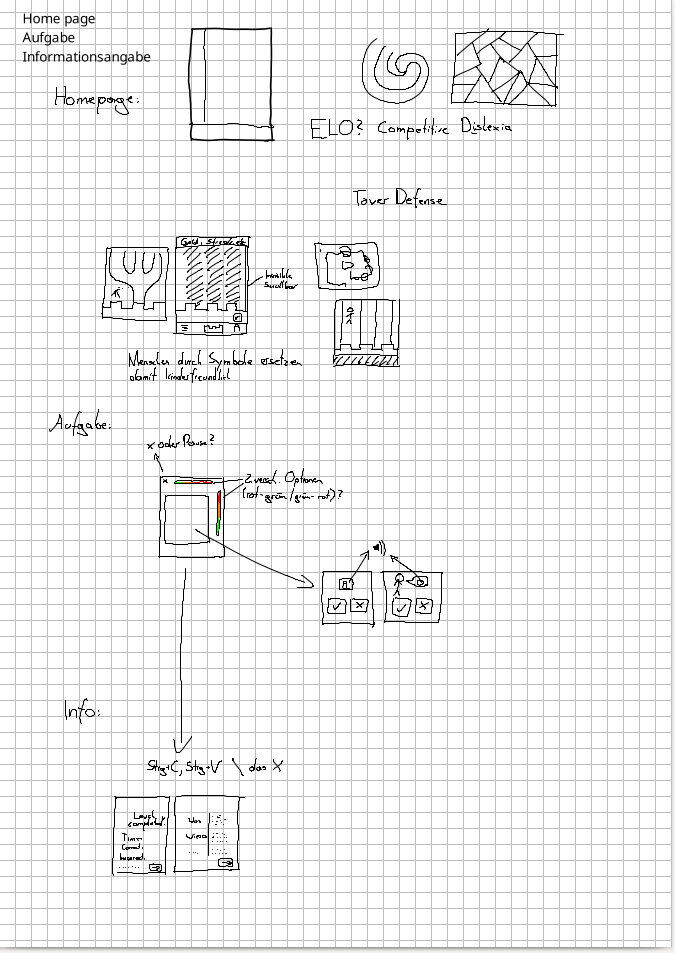 Home page
Aufgabe
Informationsangabe
Homepage:
ELO? Competitive Dislexia
Tower Defense
Gold, Streak, etc
invisible
scrollbar
Menschen durch Symbole ersetzen
damit kinderfreundlich
Aufgabe:
x oder Pause?
x
2 versch. Optionen
(rot-grün/grün-rot)?
Info:
Strg+C, Strg+V \ das X
Level
completed!
Time
Correct.
Was
Wieso
...